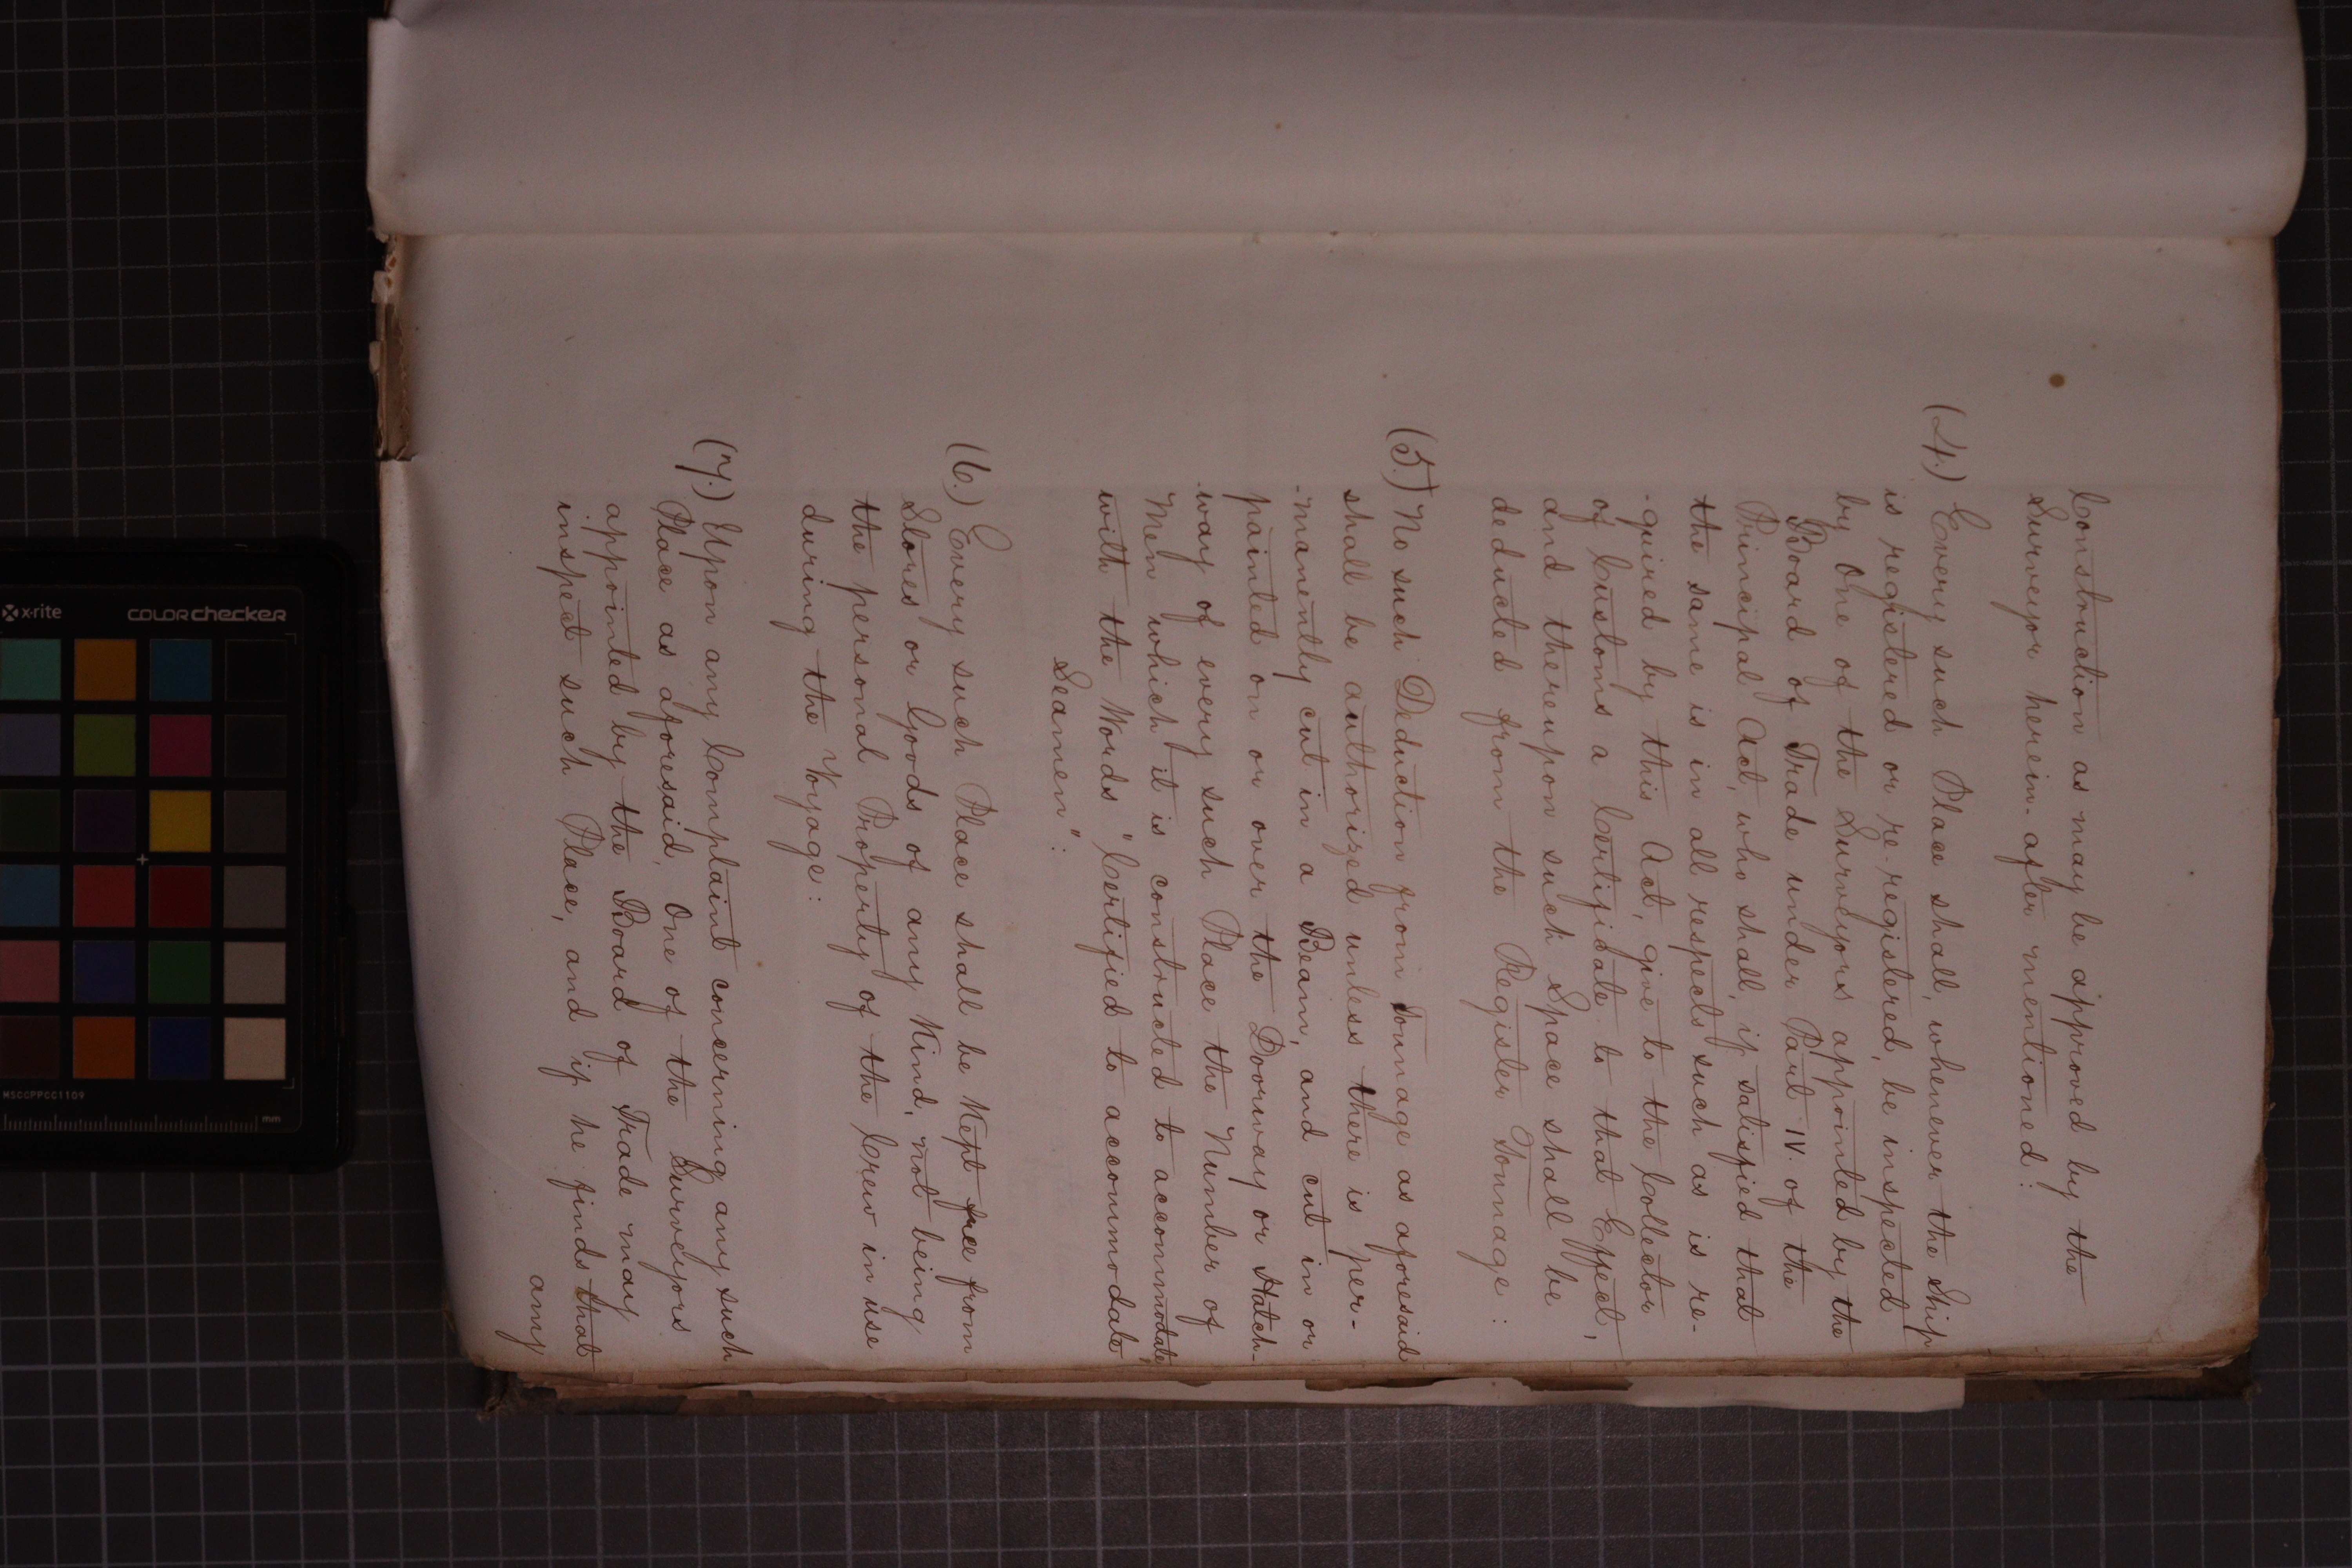 Construction as may be approved by the
Surveyor herein-after mentioned:
(4.) Every such Place shall, whenever the Ship
is registered or re-registered, be inspected
by One of the Surveyors appointed by the
Board of Trade under Part IV of the
Principal Act, who shall, if satisfied that
the same is in all respects such as is re-
-quired by this Act, give to the Collector
of Customs a Certificate to that Effect,
and thereupon such Space shall be
deducted from the Register Tonnage:
(5.) No such Deduction from Tonnage as aforesaid
shall be authorized unless there is per-
-manently cut in a Beam, and cut in or
painted on or over the Doorway or Hatch-
-way of every such Place the Number of
Men which it is constructed to accommodate,
with the Words "Certified to accommodate
Seamen":
(6.) Every such Place shall be Kept free from
Stores or Goods of any Kind, not being
the personal Property of the Crew in use
during the Voyage:
(7.) Upon any Complaint concerning any such
Place as aforesaid, One of the Surveyors
appointed by the Board of Trade may
inspect such Place, and if he finds that
any
x-rite
COLORchecker
MSCCPPCC1109
mm